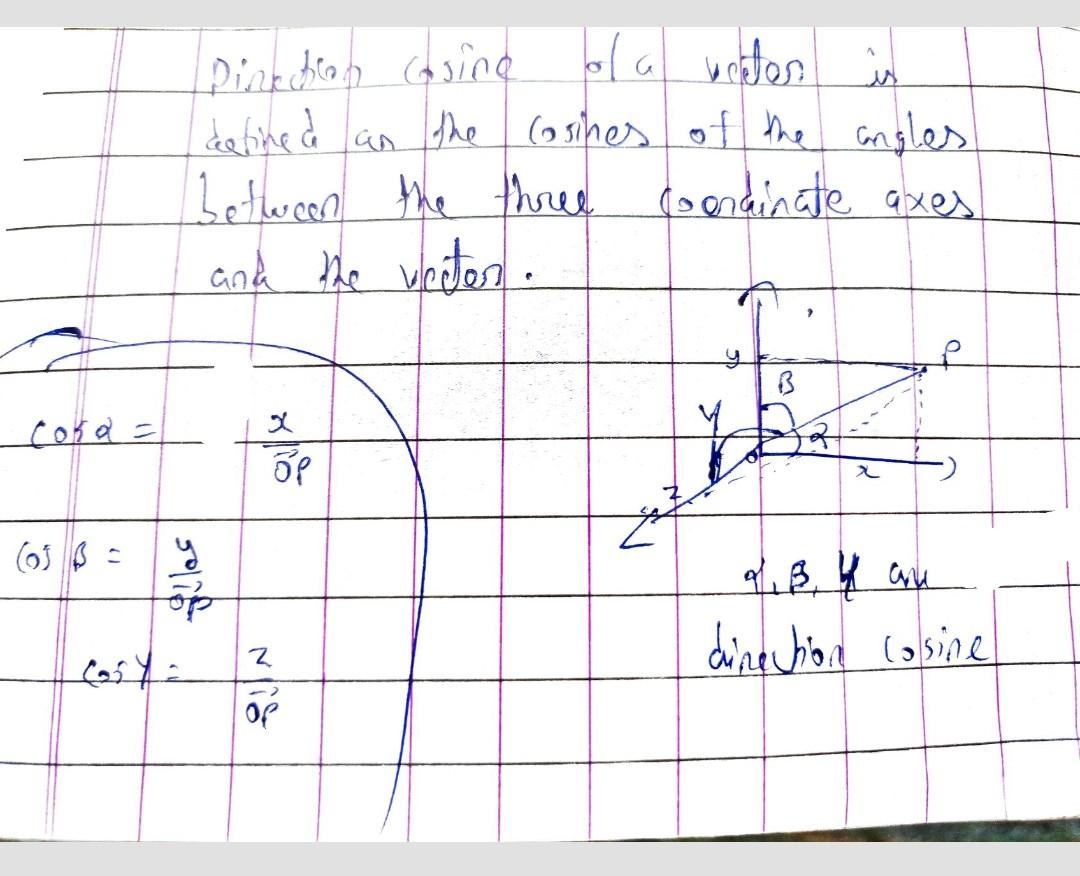 Direction Cosine of a vector is
defined as the Cosines of the angles
between the three Coordinate axes
and the vector.
y P
β
γ α
O x
z
cos α = x / OP
Cos β = y / OP
α, β, γ are
Cos γ = z / OP
direction Cosine